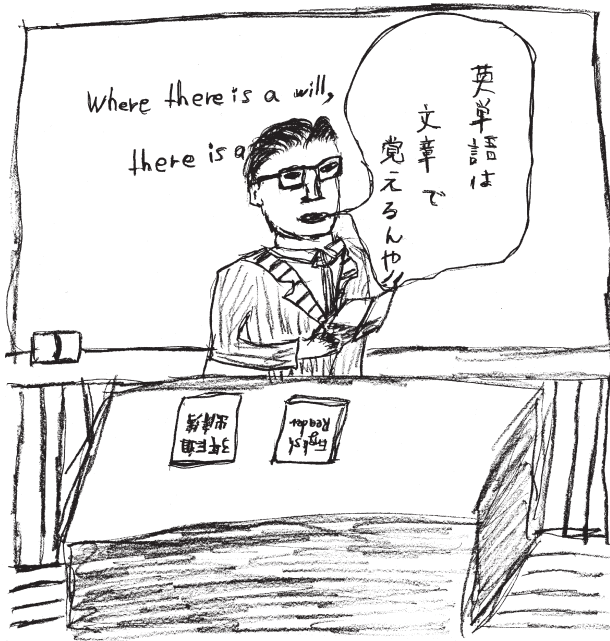 Where there is a will,
there is a
英単語は
文章で
覚えるんや!!
English
Reader
3年E組
出席簿